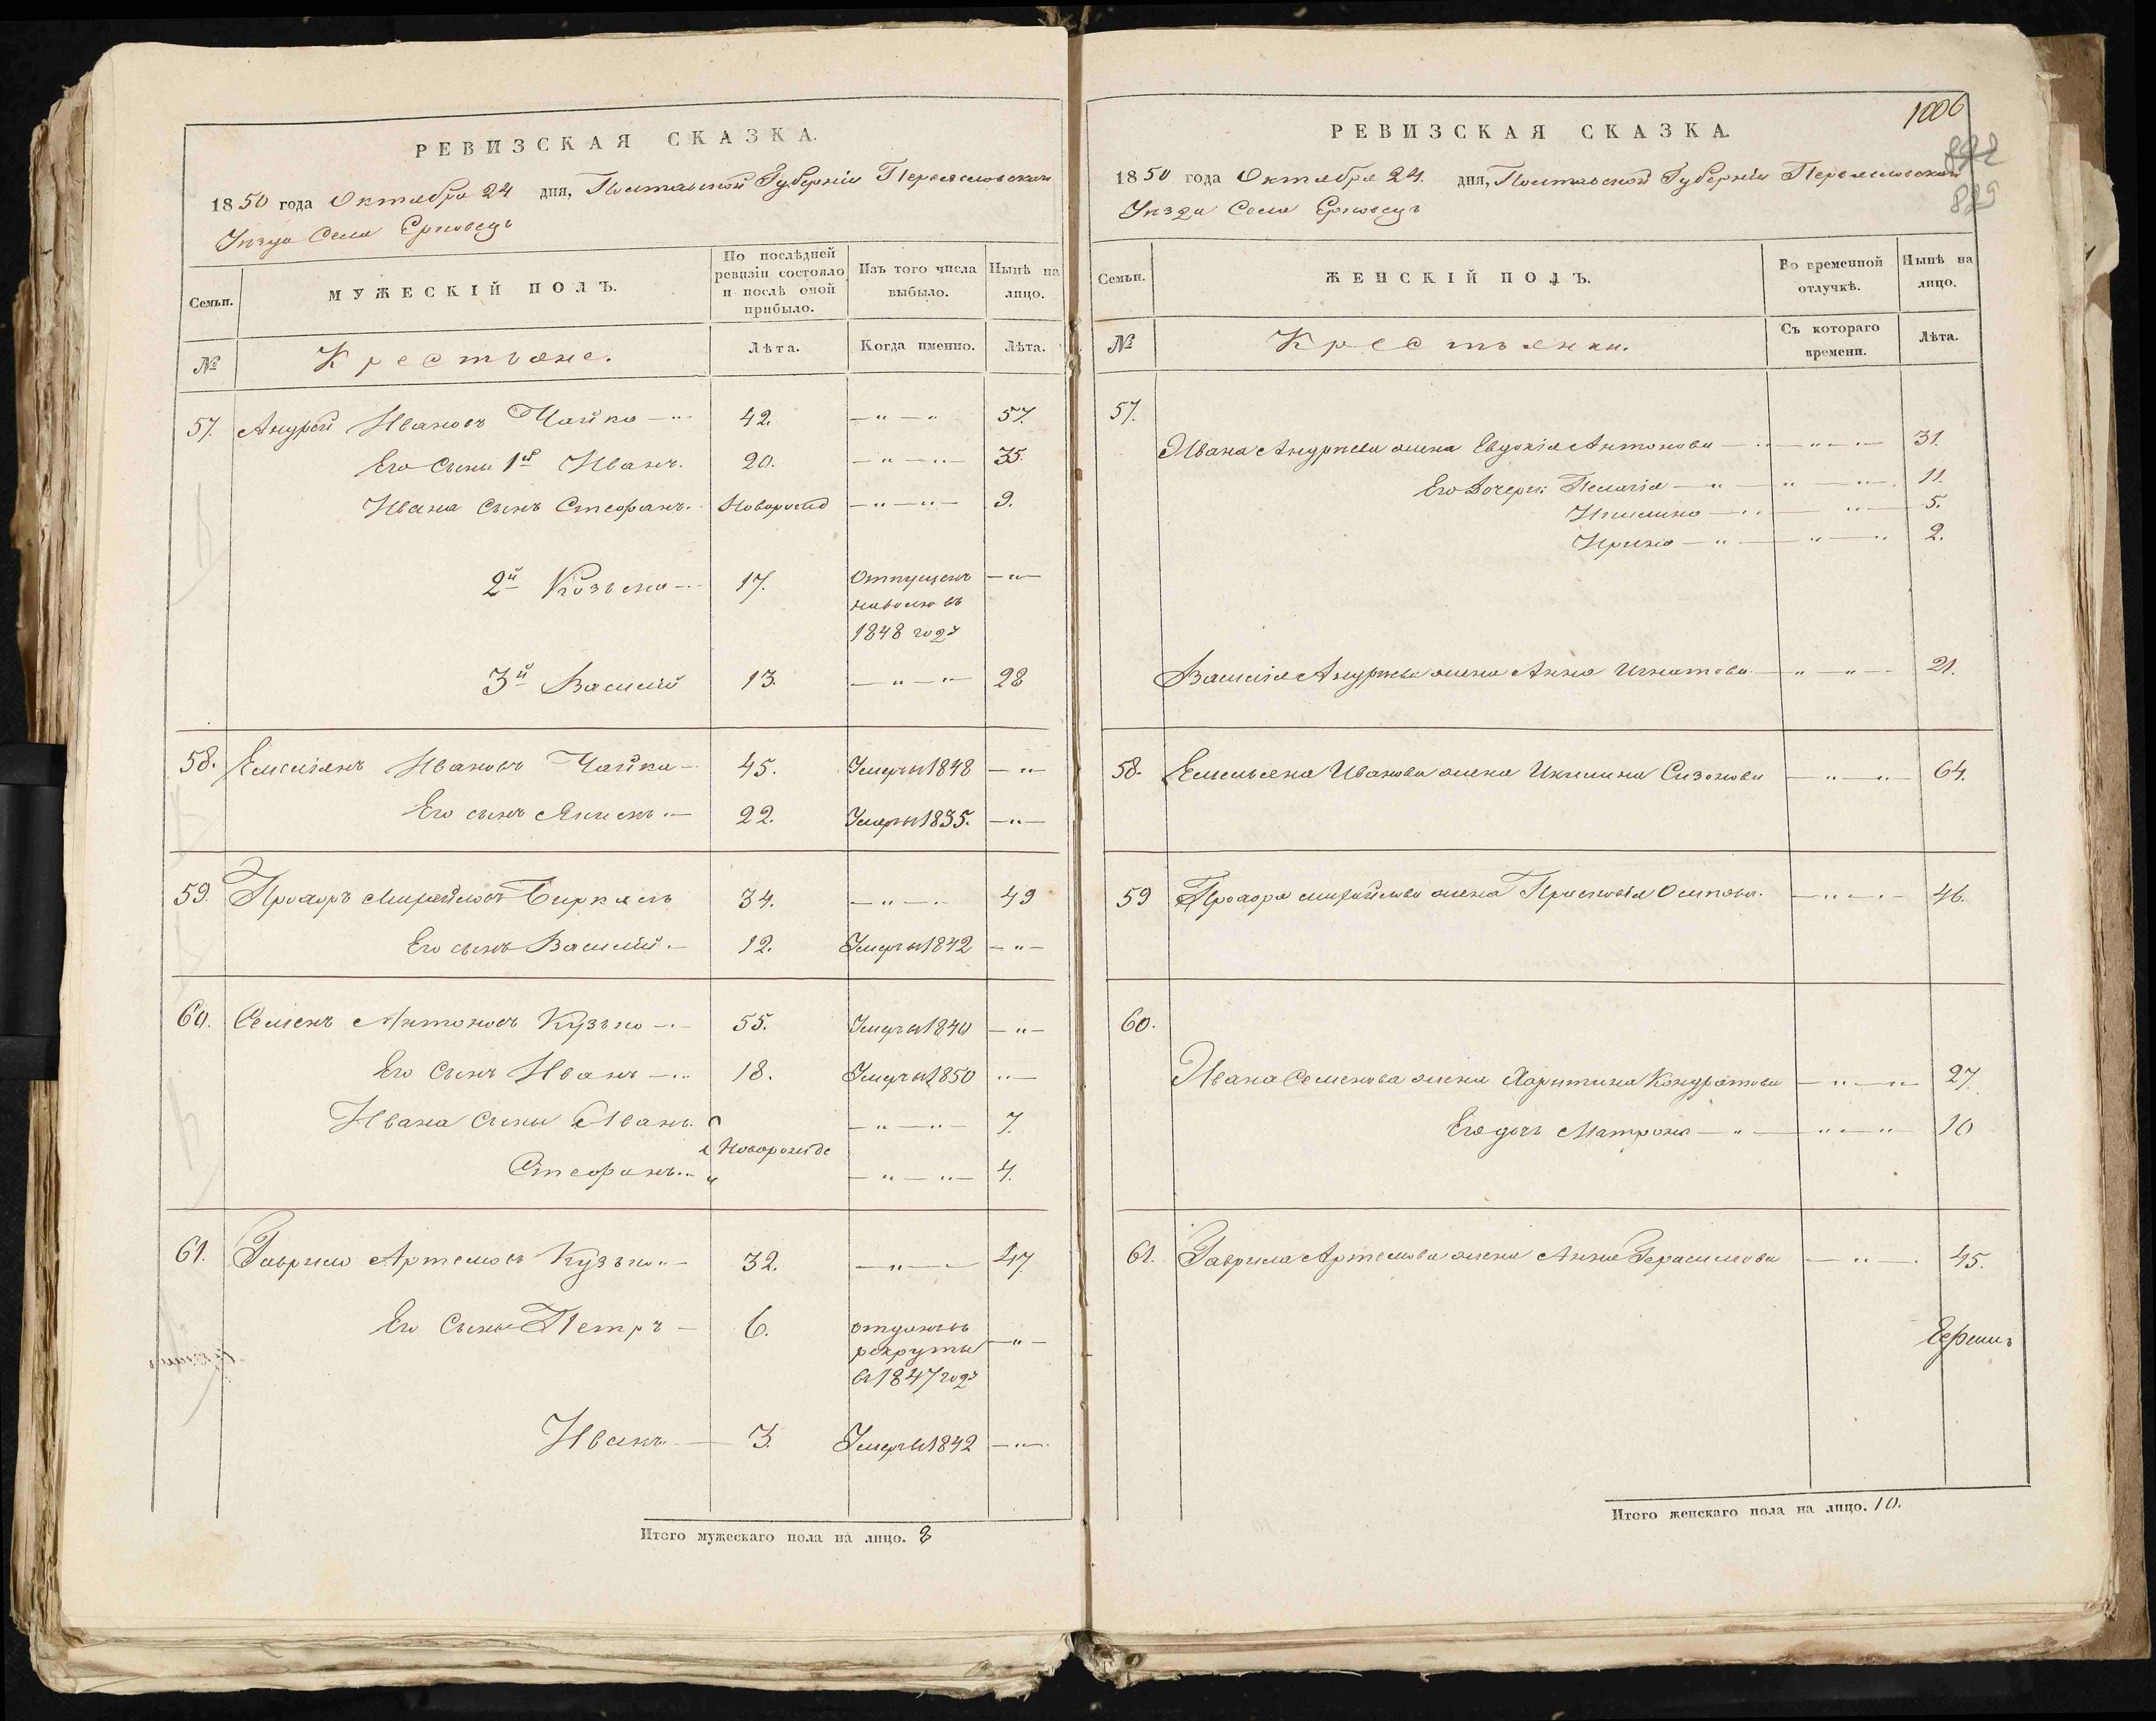 РЕВИЗСКАЯ СКАЗКА.
1850 года Октября 24 дня, Полтавской Губернiи Переяславскаго
Уезда Села Ерковецъ
Семьи.
МУЖЕСКІЙ ПОЛЪ.
По послѣдней ревизіи состояло и послѣ оной прибыло.
Изъ того числа выбыло.
Нынѣ на лицо.
№
Крестьяне.
Лѣта.
Когда именно.
Лѣта.
57. Андрей Ивановъ Чайка 42. 57.
Его сыны 1й Иванъ. 20. 35.
Ивана сынъ Стефанъ. Новорожд 9.
2й Козьма 17. Отпущенъ
наволю въ
1848 году
3й Василий 13. 28
58. Емелiянъ Ивановъ Чайка 45. Умеръ 1848
Его сынъ 22. Умеръ 1835.
59. Прохоръ Михайловъ 34. 49
Его сынъ Василий. 12. Умеръ 1842
60. Семенъ Антоновъ Кузько 55. Умеръ 1840
Его Сынъ Иванъ 18. Умеръ 1850
Ивана Сыны Иванъ. 7.
Новорожде
Стефанъ 4.
61. Гаврило Артемовъ Кузько 32. 47
Его Сыны Петръ 6. отданъ въ
рекруты
въ 1847 году
Иванъ 3. Умеръ 1842
Итого мужескаго пола на лицо. 8
1006
829
РЕВИЗСКАЯ СКАЗКА.
1850 года Октября 24. дня, Полтавской Губернiи Переяславскаго
Уезда Села Ерковецъ
Семьи.
ЖЕНСКІЙ ПОЛЪ.
Во временной отлучкѣ.
Нынѣ на лицо.
№
Крестьянки.
Съ котораго времени.
Лѣта.
57.
Ивана Андреева жена Евдокiя Антонова 31.
Его дочери: Пелагiя 11.
5.
Ирина 2.
Василiя Андреева жена Анна Игнатова 21.
58. Емельяна Иванова жена Сизонова 64.
59 Прохора Михайлова жена Прасковiя Осипова. 46.
60.
Ивана Семенова жена Харитина Кондратова 27.
Его дочь Матрона 10
61. Гаврила Артемова жена Анна Герасимова 45.
Итого женскаго пола на лицо. 10.